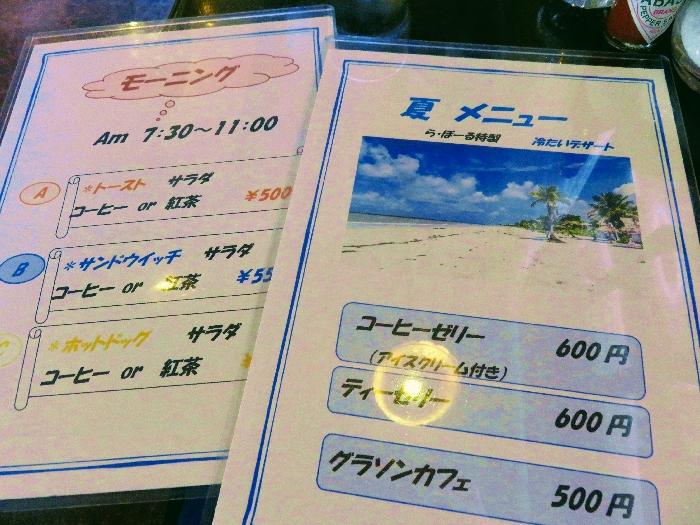 モーニング
Am 7:30～11:00
A
*トースト サラダ
コーヒー or 紅茶 ¥500
B
*サンドウイッチ サラダ
コーヒー or 紅茶 ¥55
C
*ホットドッグ サラダ
コーヒー or 紅茶
夏 メニュー
ら・ぽーる特製 冷たいデザート
コーヒーゼリー 600円
(アイスクリーム付き)
ティーゼリー 600円
グラソンカフェ 500円
PEPPER